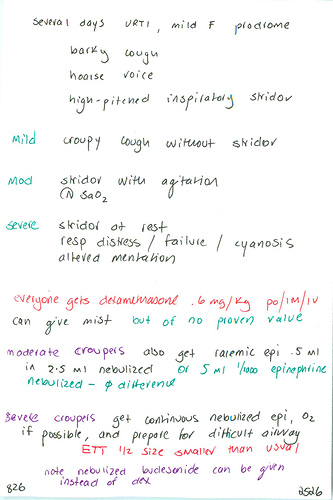 several days URTI, mild F prodrome
barky cough
hoarse voice
high-pitched inspiratory stridor
mild croupy cough without stridor
mod stridor with agitation
Ⓝ SaO2
severe stridor at rest
resp distress / failure / cyanosis
altered mentation
everyone gets dexamethasone .6 mg/kg po/IM/IV
can give mist but of no proven value
moderate croupers also get racemic epi .5 ml
in 2.5 ml nebulized or 5 ml 1/1000 epinephrine
nebulized - ϕ difference
severe croupers get continuous nebulized epi, O2
if possible, and prepare for difficult airway
ETT 1/2 size smaller than usual
note nebulized budesonide can be given
instead of dex
826
2526